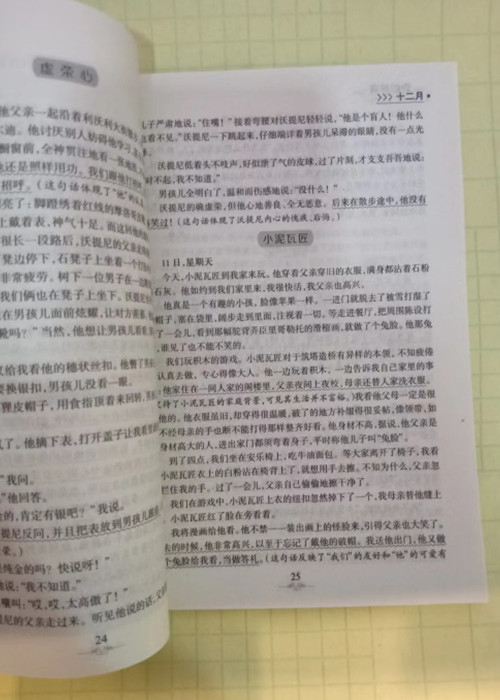 虚荣心
他父亲一起沿着利沃利大
迪。他讨厌别人妨碍他学习
橱窗前，全神贯注地看一张地
他还是照样用功。我们跟他打
招呼。（这句话体现了“他”的
亮了：脚蹬绣着红线的摩洛哥
上戴着表，神气十足。而这回他的
很长一段路后，沃提尼的父亲
凳边停下，石凳子上坐着一个
非常疲劳。树下一位男子在一边
我们俩也在凳子上坐下。沃提尼
在男孩儿面前炫耀，让对方羡慕
靴吗？”当然，他想让男孩儿看
又给我看他的穗状丝扣。他瞥了男
要换银扣，男孩儿没看一眼。
狸皮帽子，用食指顶着来回转。男
气了。他摘下表，打开盖子让我看
”我问。
”他回答。
的，肯定有银吧？”我说。
提尼反问，并且把表放到男孩儿跟
荣。）
是纯金的吗？快说呀！”
地说：“我不知道。”
嚷叫：“哎，哎，太高傲了！”
尼的父亲走过来。听见他说的话，
24
>>> 十二月
儿子严肃地说：“住嘴！”接着弯腰对沃提尼轻轻说，“他是个盲人！他什么
看不见。”沃提尼一下跳起来，仔细端详着男孩儿呆滞的眼睛，没有一点光
沃提尼低着头不吱声，好似泄了气的皮球，过了片刻，才支支吾吾地说：
对不起，我不知道。”
男孩儿全明白了，温和而伤感地说：“没什么！”
沃提尼的确虚荣，但他心地善良，全无恶意。后来在散步途中，他没有
笑过！（这句话体现了沃提尼内心的愧疚、后悔。）
小泥瓦匠
11 日，星期天
今天，小泥瓦匠到我家来玩。他穿着父亲穿旧的衣服，满身都沾着石粉
石灰。他如约到我们家里来，我很快活，我父亲也高兴。
他真是一个有趣的小孩，脸像苹果一样。一进门就脱去了被雪打湿了
帽子，塞在袋里，阔步走到里面，注视着一切。等走进餐厅，把周围陈设打
了一会儿，看到那幅驼背弄臣里哥勒托的滑稽画，就做了个兔脸。他那兔
谁见了也不能不笑的。
我们玩积木的游戏。小泥瓦匠对于筑塔造桥有异样的本领，不知疲倦
认真去做，专心得像大人。他一边玩着积木，一边告诉我自己家里的事
：他家住在一间人家的阁楼里，父亲夜间上夜校，母亲还替人家洗衣服。
交待了小泥瓦匠的家庭背景，可见其生活并不富裕。）我看他父母一定是很
他的。他衣服虽旧，却穿得很温暖，破了的地方补缀得很妥帖，像领带，如
不经母亲的手也断不能打得那样整齐好看。他身材不高，据说，他父亲是
身材高大的人，进出家门都须弯着身子，平时称他儿子叫“兔脸”。
到了四点，我们坐在安乐椅上，吃牛油面包。等大家离开了椅子，我看
小泥瓦匠衣上的白粉沾在椅背上了，就想用手去擦。不知为什么，父亲忽
拦住我的手。过了一会儿，父亲自己偷偷地擦干净了。
我们在游戏中，小泥瓦匠上衣的纽扣忽然掉下了一个，我母亲替他缝上
小泥瓦匠红了脸在旁看着。
我将漫画给他看。他不禁一一装出画上的怪脸来，引得父亲也大笑了。
去的时候，他非常高兴，以至于忘记了戴他的破帽。我送他出门，他又做
个兔脸给我看，当做答礼。（这句话反映了“我们”的友好和“他”的可爱有
25